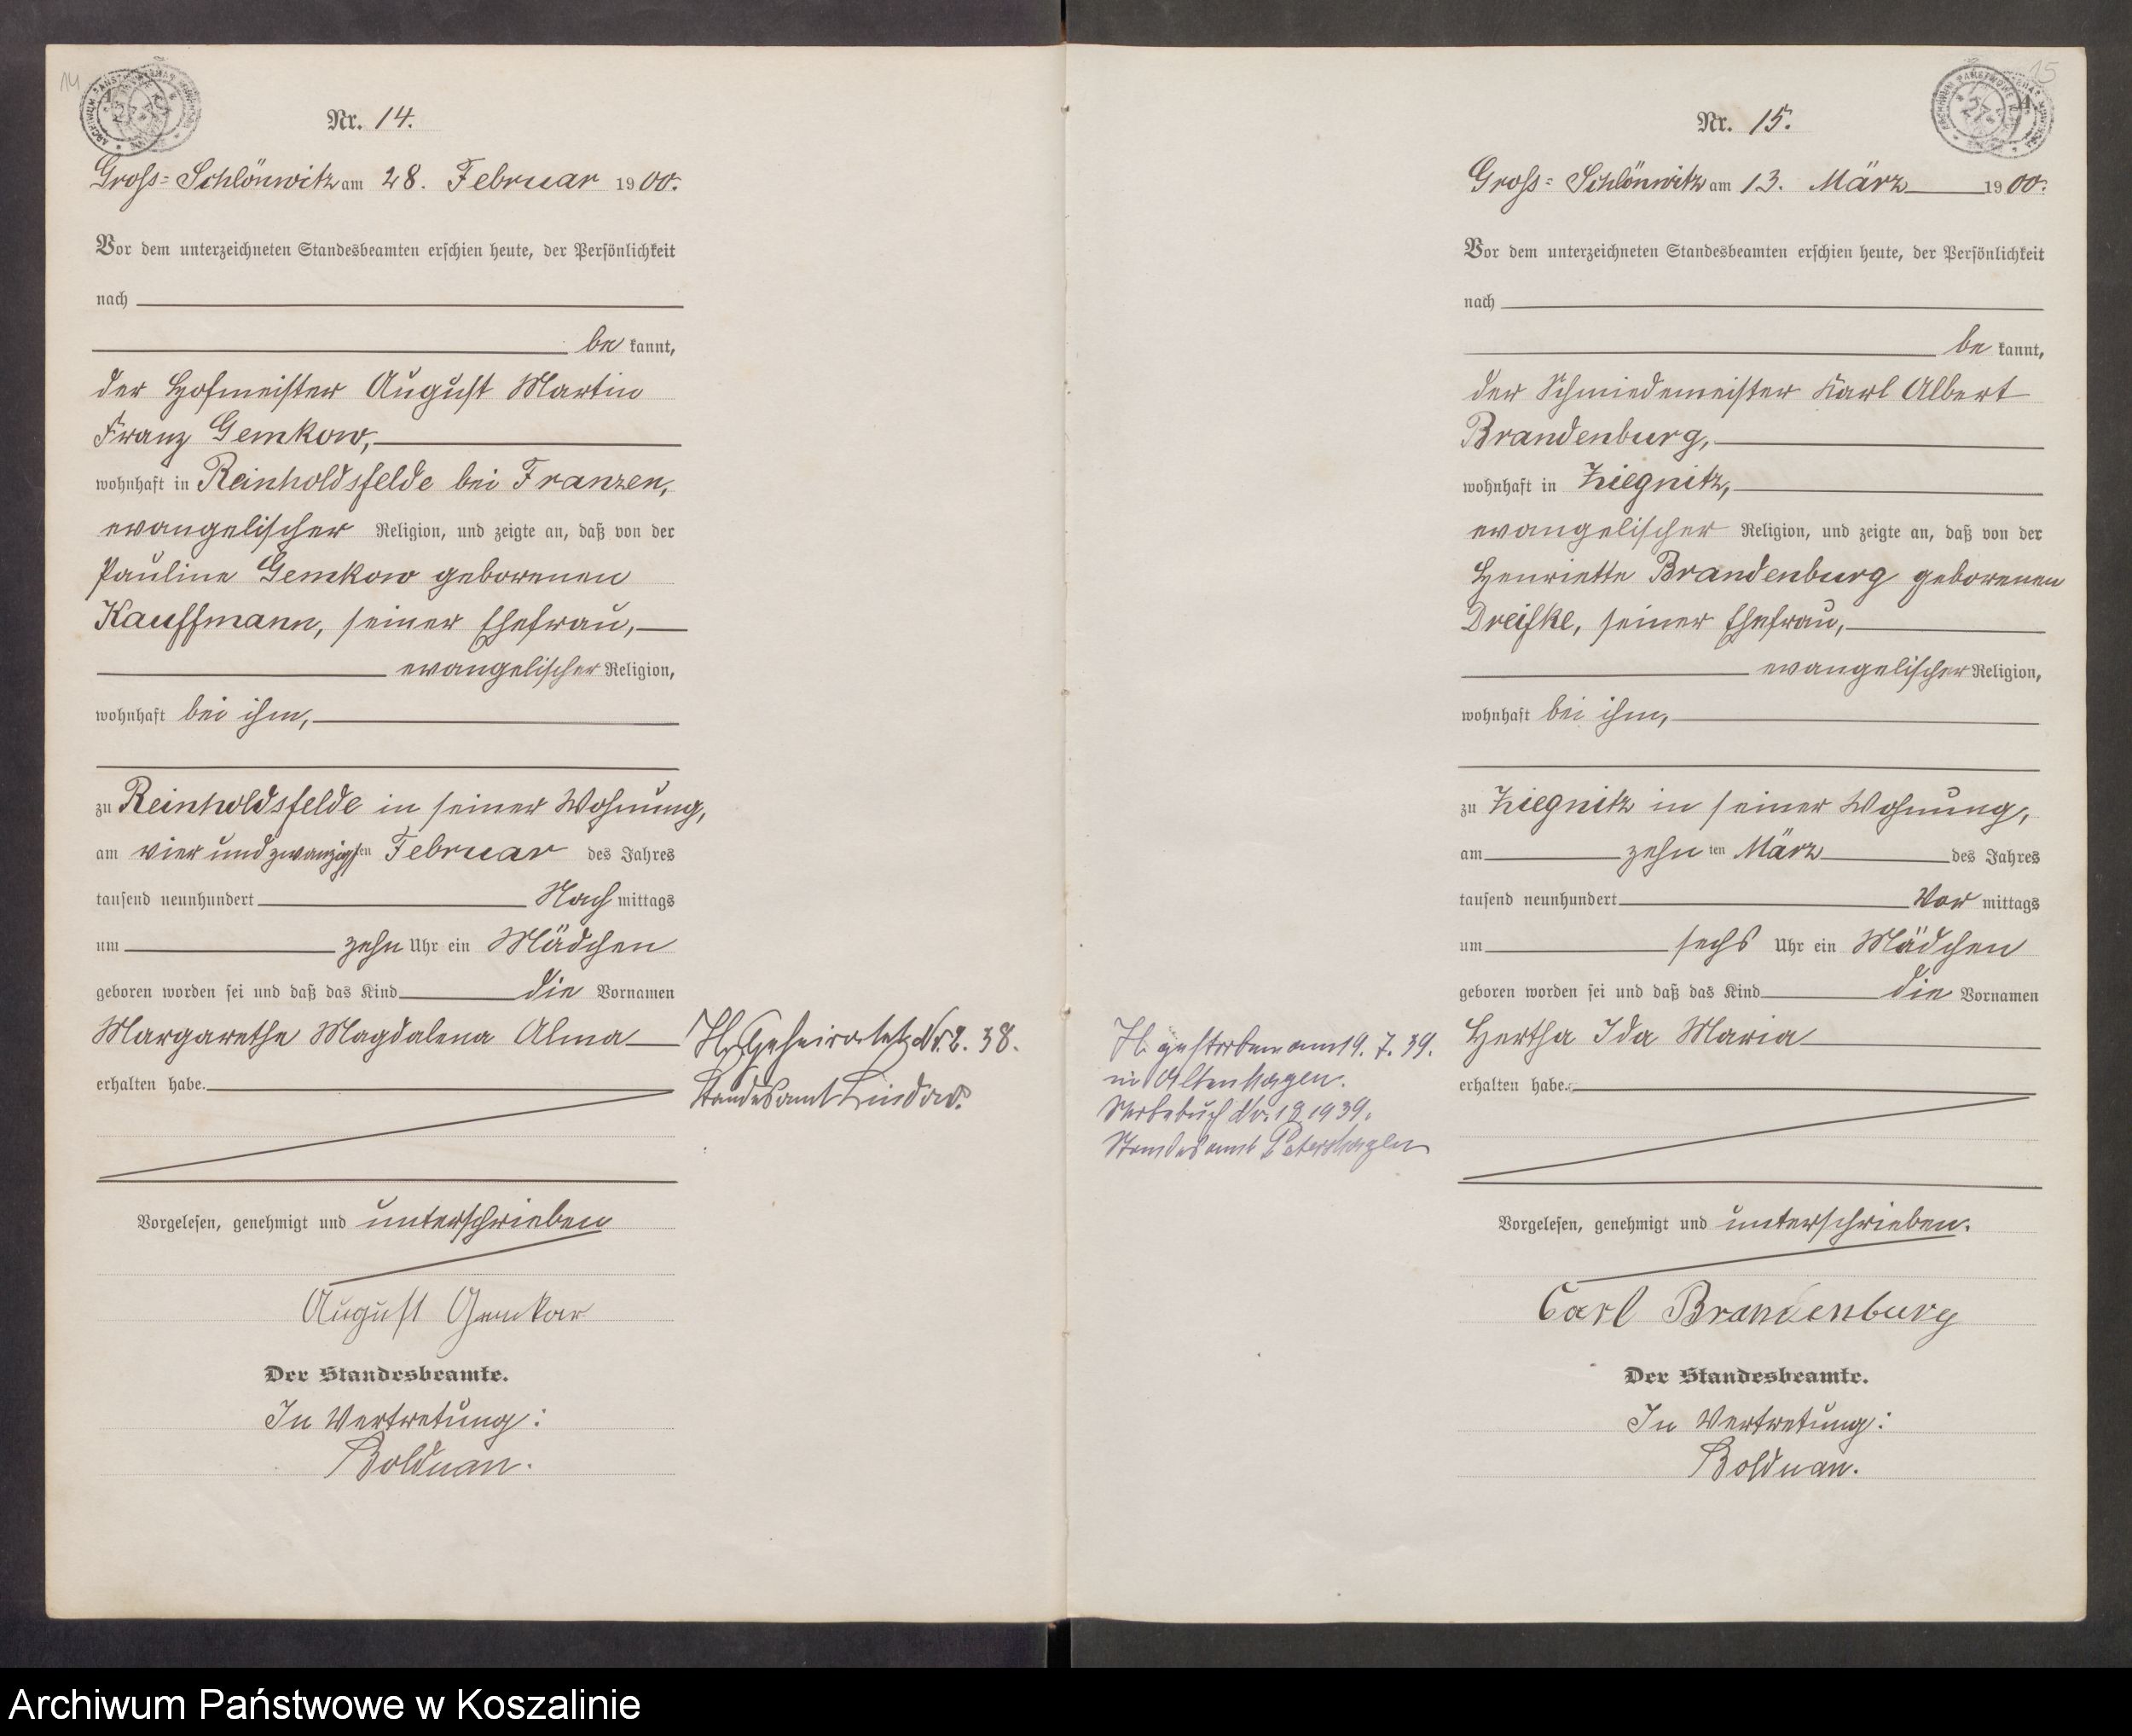 14
Nr. 14.
Gross-Schlönwitz am 28. Februar 1900.
Vor dem unterzeichneten Standesbeamten erschien heute, der Persönlichkeit
nach
be kannt,
der Hofmeister August Martin
Franz Gemkow,
wohnhaft in Reinholdsfelde bei Franzen,
evangelischer Religion, und zeigte an, daß von der
Pauline Gemkow geborenen
Kauffmann, seiner Ehefrau,
evangelischer Religion,
wohnhaft bei ihm,
zu Reinholdsfelde in seiner Wohnung,
am vier und zwanzigsten Februar des Jahres
tausend neunhundert Nach mittags
um zehn Uhr ein Mädchen
geboren worden sei und daß das Kind die Vornamen
Margarethe Magdalena Alma
erhalten habe.
geheiratet Nr. 2. 38.
Standesamt Lindow.
Vorgelesen, genehmigt und unterschrieben
August Gemkow
Der Standesbeamte.
In Vertretung:
Bolduan.
15
Nr. 15.
Gross-Schlönwitz am 13. März 1900.
Vor dem unterzeichneten Standesbeamten erschien heute, der Persönlichkeit
nach
be kannt,
der Schmiedemeister Karl Albert
Brandenburg,
wohnhaft in Ziegnitz,
evangelischer Religion, und zeigte an, daß von der
Henriette Brandenburg geborenen
Dreifke, seiner Ehefrau,
evangelischer Religion,
wohnhaft bei ihm,
zu Ziegnitz in seiner Wohnung,
am zehn ten März des Jahres
tausend neunhundert Vor mittags
um sechs Uhr ein Mädchen
geboren worden sei und daß das Kind die Vornamen
Hertha Ida Maria
erhalten habe.
gestorben am 19. 7. 39.
in Altenhagen.
Sterbebuch Nr. 1939.
Standesamt Petershagen
Vorgelesen, genehmigt und unterschrieben.
Carl Brandenburg
Der Standesbeamte.
In Vertretung:
Bolduan.
Archiwum Państwowe w Koszalinie